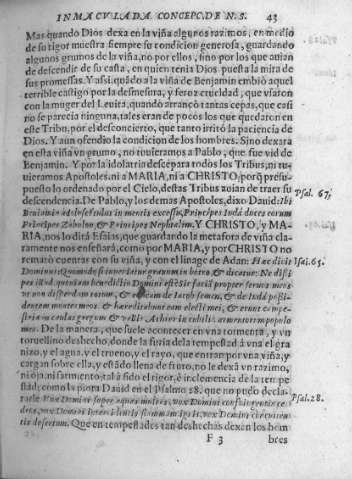 INMACVLADA CONCEPC. DE N. S. 43
Mas quando Dios dexa en la viña algunos razimos, en medio
de su rigor muestra siempre su condicion generosa, guardando
algunos grumos de la viña, no por ellos, sino por los que auian
de descendir de su casta, en quien tenia Dios puesta la mira de
sus promessas. Y assi quãdo a la viña de Benjamin embiò aquel
terrible castigo por la desmesura, y feroz crueldad, que vsaron
con la muger del Leuita, quando arrancò tantas cepas, que casi
no se parecia ninguna, tales eran de pocos los que quedaron en
este Tribu, por el desconcierto, que tanto irritò la paciencia de
Dios. Y aun ofendio la condicion de los hombres. Sino dexara
en esta viña vn grumo, no tuuieramos a Pablo, que fue vid de
Benjamin. Y por la idolatria descepara todos los Tribus, ni tu-
uieramos Apostoles, ni a MARIA, ni a CHRISTO, porq̃ presu-
puesto lo ordenado por el Cielo, destas Tribus auian de traer su
descendencia. De Pablo, y los demas Apostoles, dixo Dauid: Ibi
Psal. 67.
Beniamin adolescentulus in mentis excessu, Principes Iuda duces eorum
Principes Zabulon, & Principes Nephtalim. Y CHRISTO, y MA-
RIA, nos lo dirà Esaias, que guardando la metafora de viña cla-
ramente nos enseñarà, como por MARIA, y por CHRISTO no
rematò cuentas con su viña, y con el linage de Adan: Hæc dicit
Isai. 65.
Dominus: Quomodo si inueniatur granum in botro, & dicatur: Ne dissi-
pes illud, quoniam benedictio Domini est: sic faciam propter seruos meos
vt non disperdam totum, & educam de Iacob semen, & de Iuda possi-
dentem montes meos, & hæreditabunt eam electi mei, & erunt campe-
stria in caulas gregum, & vallis Achor in cubile armentorum populo
meo. De la manera, que suele acontecer en vna tormenta, y vn
toruellino deshecho, donde la furia de la tempestad à vna el gra
nizo, y el agua, y el trueno, y el rayo, que entran por vna viña, y
cargan sobre ella, y estãdo llena de fruto, no le dexã vn razimo,
ni oja, ni sarmiento, tal à sido el rigor, è inclemencia de la tempe
stad, como la pinta Dauid en el Psalmo 28. que no pudo decla-
Psal. 28.
rarle Vox Domini super aquas multas, vox Domini confringentis ce-
dros, vox Domini intercidentis flammam ignis, vox Domini concutientis
desertum. Que en tempestades tan deshechas dexen los hom
F 3 bres